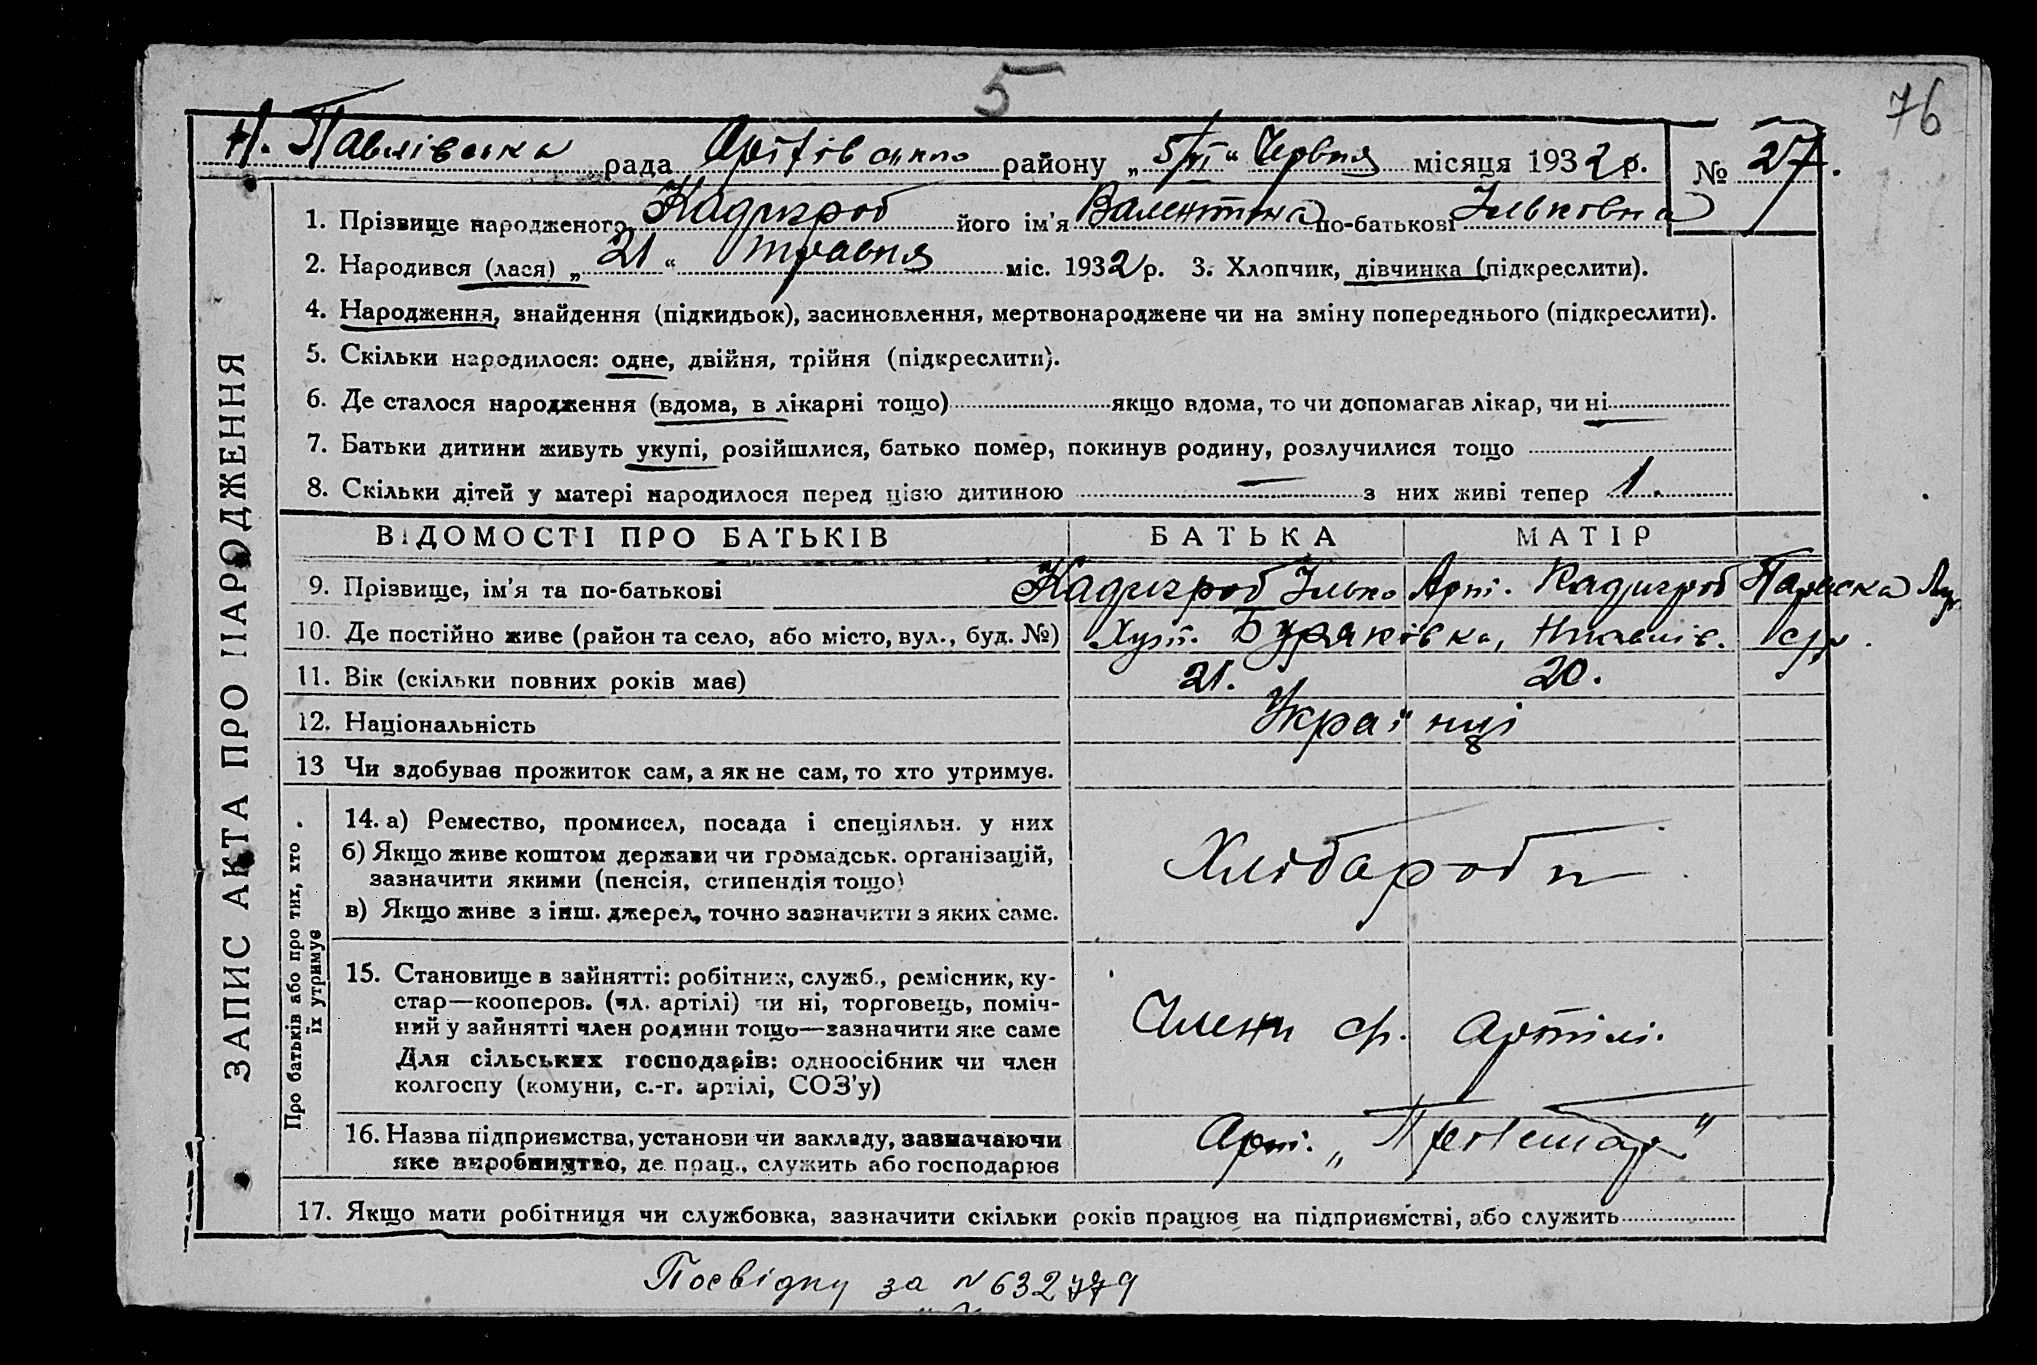 5
76
Н. Павлівська рада Артівського району „5/VI“ Червня місяця 1932 р. № 27.
1. Прізвище народженого Кадигроб його ім'я Валентина по-батькові Ільковна
2. Народився (лася) „21“ травня міс. 1932 р. 3. Хлопчик, дівчинка (підкреслити).
4. Народження, знайдення (підкидьок), засиновлення, мертвонароджене чи на зміну попереднього (підкреслити).
5. Скільки народилося: одне, двійня, трійня (підкреслити).
6. Де сталося народження (вдома, в лікарні тощо) якщо вдома, то чи допомагав лікар, чи ні
7. Батьки дитини живуть укупі, розійшлися, батько помер, покинув родину, розлучилися тощо
8. Скільки дітей у матері народилося перед цією дитиною — з них живі тепер 1.
ЗАПИС АКТА ПРО НАРОДЖЕННЯ
ВІДОМОСТІ ПРО БАТЬКІВ БАТЬКА МАТІР
9. Прізвище, ім'я та по-батькові Кадигроб Ілько Арт. Кадигроб Параска
10. Де постійно живе (район та село, або місто, вул., буд. №) Хут. Буряківка, Н Павлів. с/р.
11. Вік (скільки повних років має) 21. 20.
12. Національність Українці
13 Чи здобував прожиток сам, а як не сам, то хто утримує.
Про батьків або про тих, хто
їх утримує
14. а) Ремество, промисел, посада і спеціяльн. у них
б) Якщо живе коштом держави чи громадськ. організацій,
зазначити якими (пенсія, стипендія тощо)
в) Якщо живе з інш. джерел, точно зазначити з яких саме.
Хлібороби
15. Становище в зайнятті: робітник, служб., ремісник, ку-
стар—кооперов. (чл. артілі) чи ні, торговець, поміч-
ний у зайнятті член родини тощо—зазначити яке саме
Для сільських господарів: одноосібник чи член
колгоспу (комуни, с.-г. артілі, СОЗ'у)
Члени с/г. артілі.
16. Назва підприємства, установи чи закладу, зазначаючи
яке виробництво, де прац., служить або господарює
Арт. „Пролетар“
17. Якщо мати робітниця чи службовка, зазначити скільки років працює на підприємстві, або служить
Посвідку за №